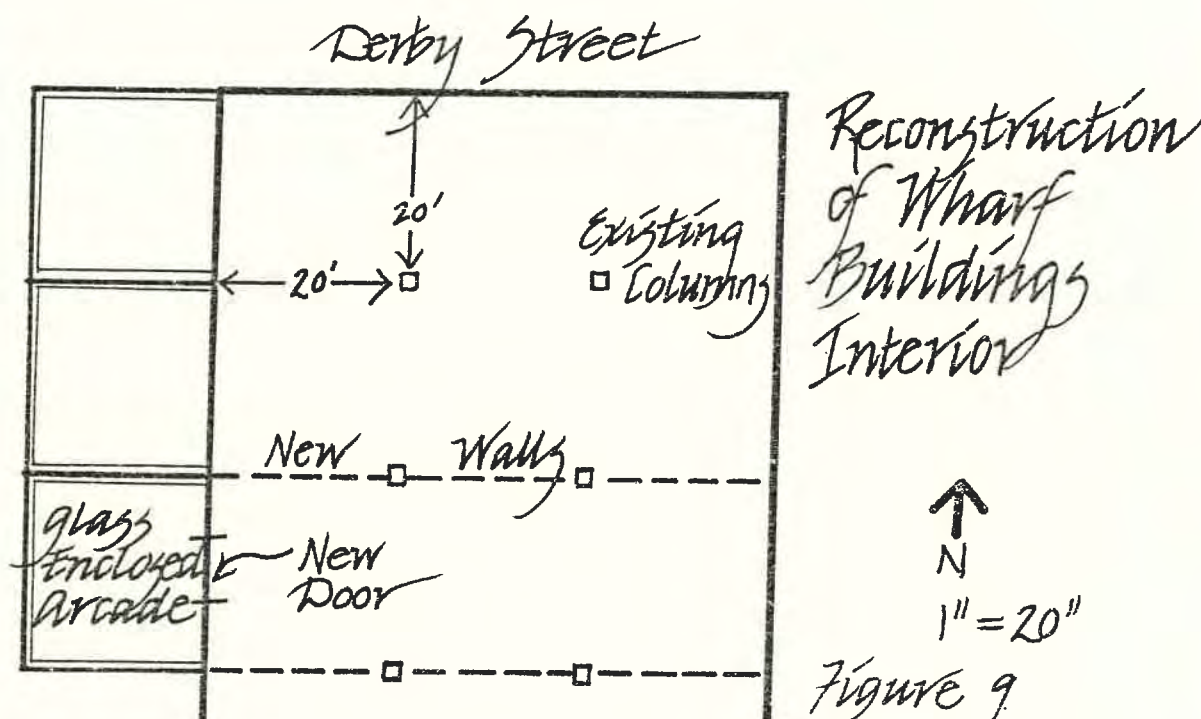 Derby Street
Reconstruction
of Wharf
Buildings
Interior
20'
20'
Existing
Columns
New Walls
glass
Enclosed
Arcade
New
Door
N
1" = 20"
Figure 9